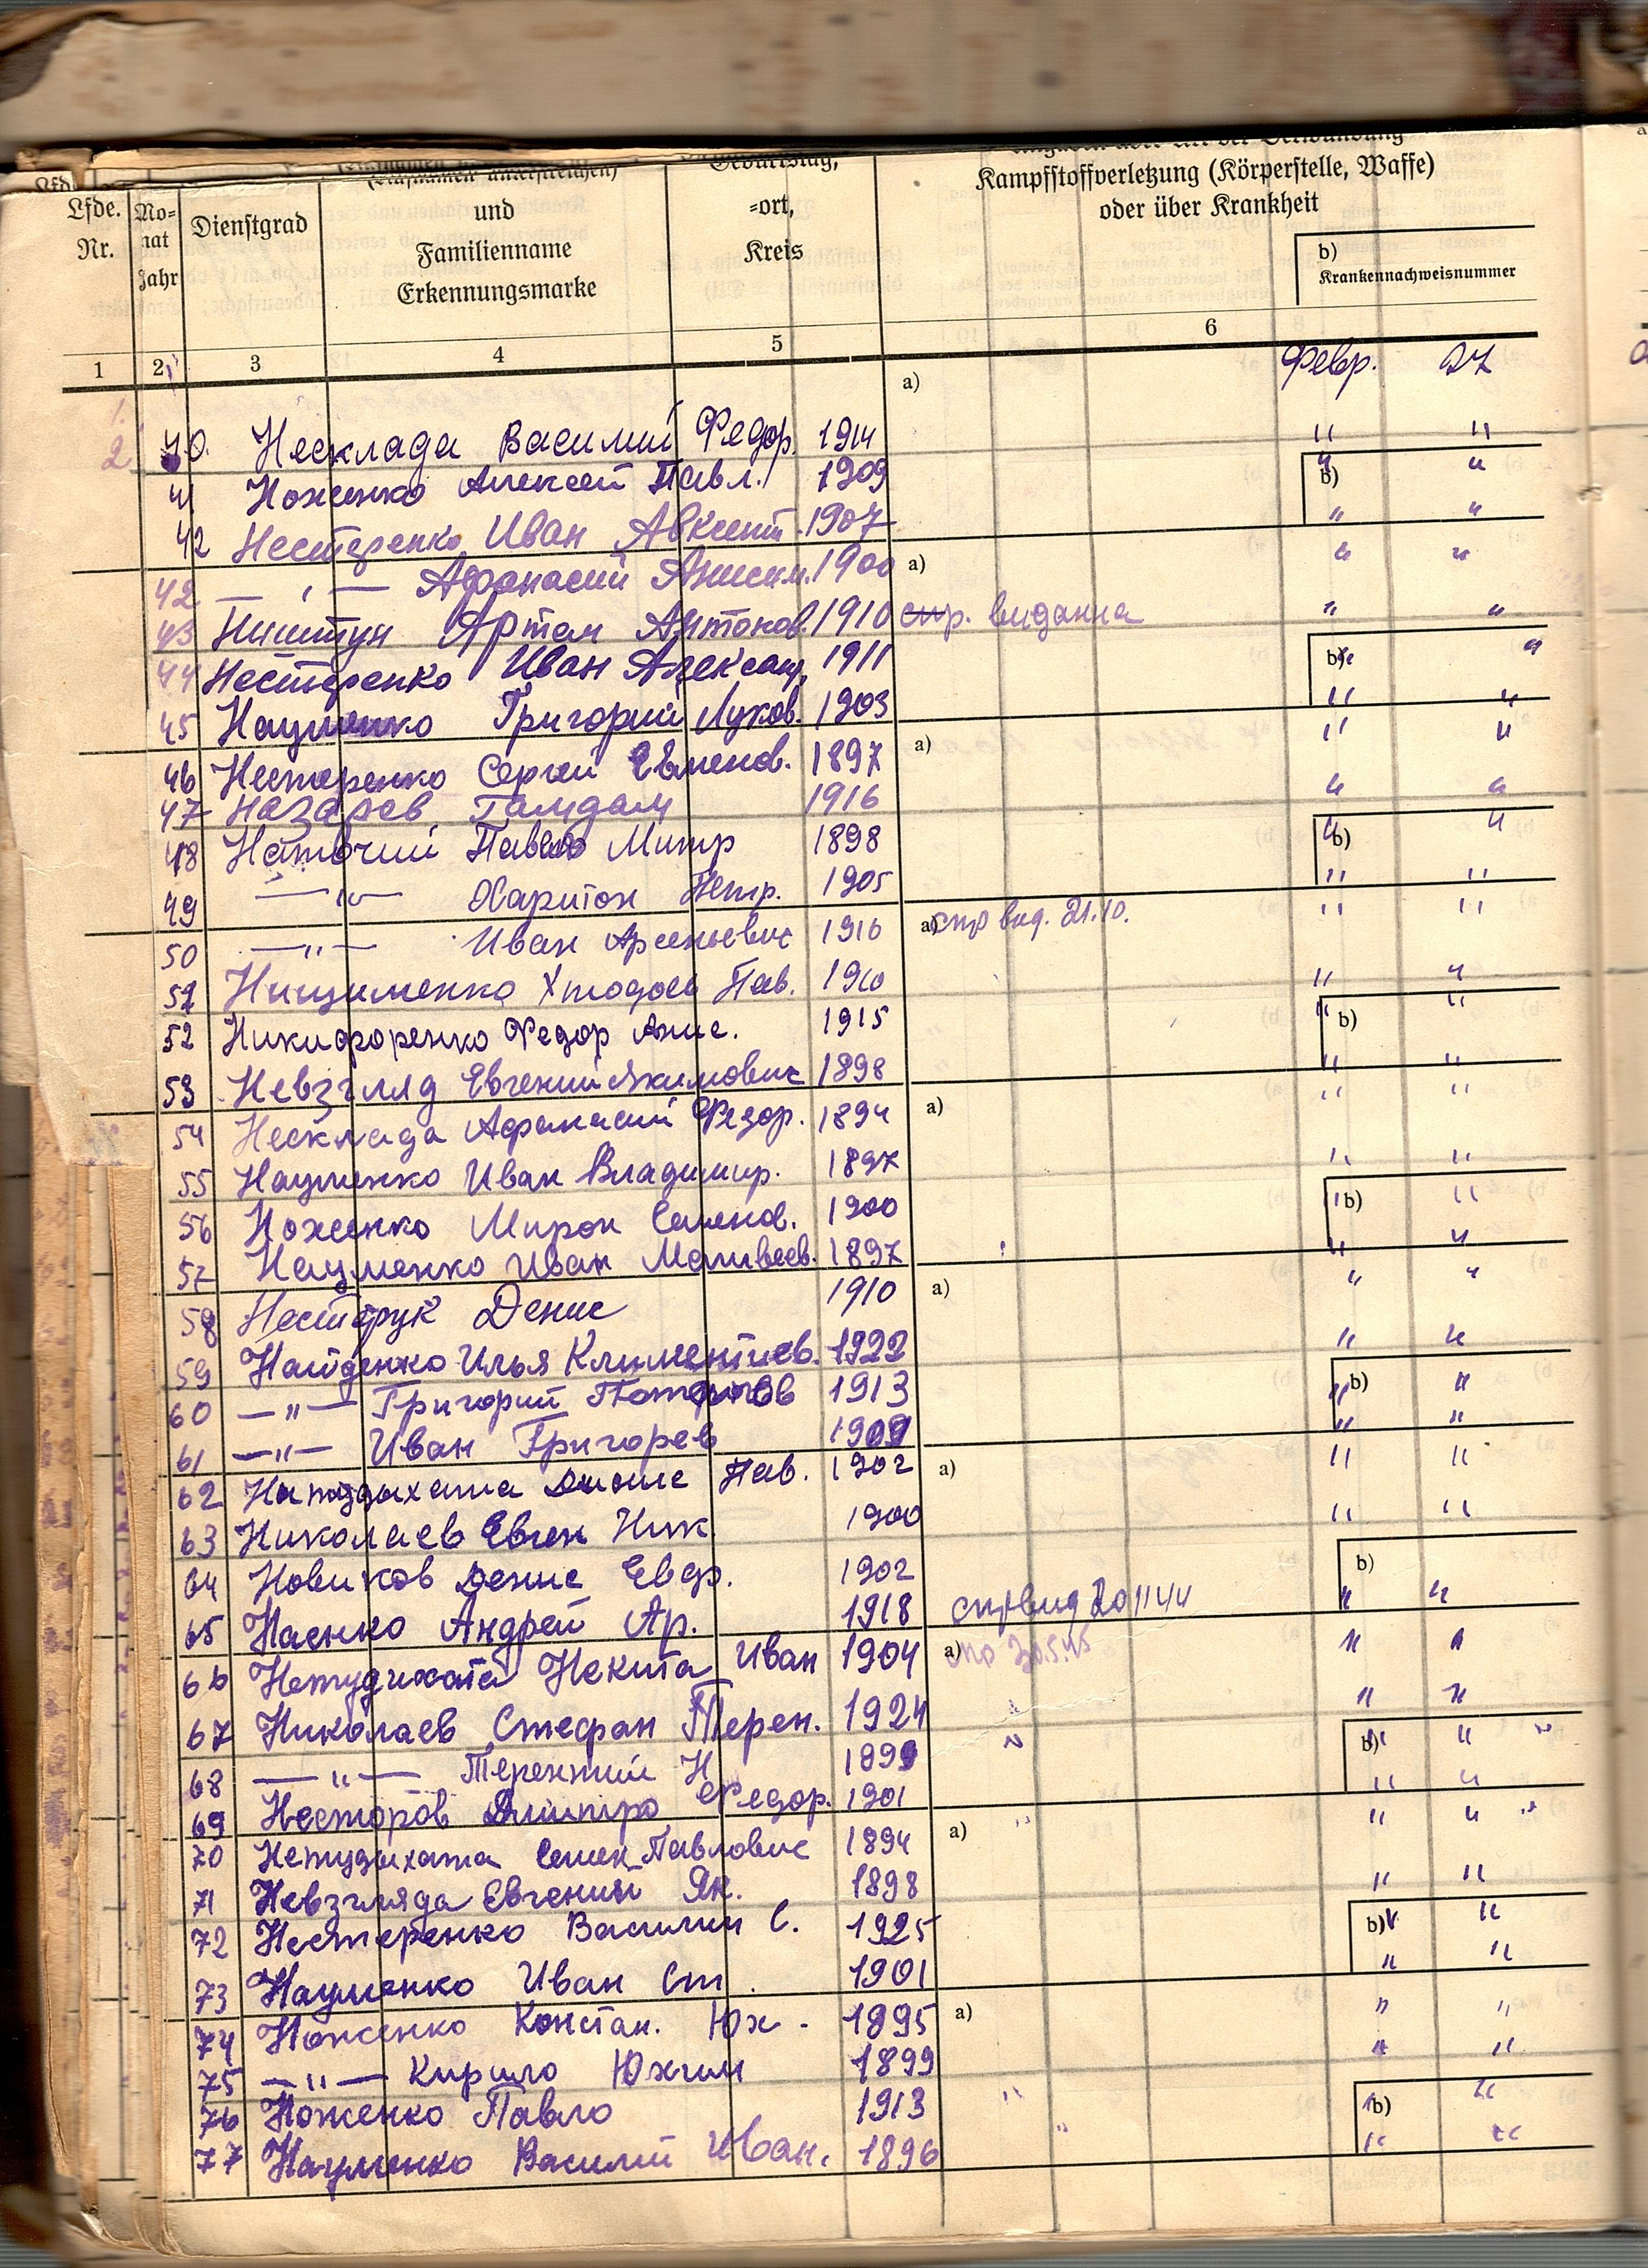 Kampfstoffverletzung (Körperstelle, Waffe)
oder über Krankheit
Lfde. Nr.
Mo-
nat
Jahr
Dienstgrad
und
Familienname
Erkennungsmarke
Geburtstag,
-ort,
Kreis
b)
Krankennachweisnummer
1 2 3 4 5 6
Февр. 27
a)
40. Несклада Василий Федор. 1914 " "
41 Ноженко Алексей Павл. 1909 b) " "
42 Нестеренко Иван Авксент. 1907 " "
42 — " — Афонасий Аниским. 1900 a) " "
43 Артем Антонов. 1910 спр. видання " "
44 Нестеренко Иван Алексан. 1911 b) " "
45 Науменко Григорий Луков. 1903 " "
46 Нестеренко Сергей Евменов. 1897 a) " "
47 Назарев Гамдам 1916 " "
48 Павло Митр 1898 b) " "
49 — " — Харитон Петр. 1905 " "
50 — " — Иван Арсеньевич 1916 a) спр вид. 21.10. " "
51 Пав. 1910 " "
52 Никифоренко Федор Анис. 1915 b) " "
53 Невзгляд Евгений Якимович 1898 " "
54 Несклада Афанасий Федор. 1894 a) " "
55 Науменко Иван Владимир. 1897 " "
56 Ноженко Мирон Семенов. 1900 b) " "
57 Науменко Иван Матвеев. 1897 " "
58 Нестерук Денис 1910 a) " "
59 Найденко Илья Климентиев. 1922 " "
60 — " — Григорий 1913 b) " "
61 — " — Иван Григорев 1909 " "
62 Пав. 1902 a) " "
63 Николаев Евген Ник. 1900 " "
64 Новиков Денис Евдр. 1902 b)
65 Наенко Андрей Ар. 1918 спр вид 20 11 44 " "
66 Нетудихата Некита Иван 1904 a) " "
67 Николаев Стефан Терен. 1924 " "
68 — " — Терентий Н 1899 " b) " "
69 Несторов Дмитро Федор. 1901 " "
70 Нетудыхата Семен Павлович 1894 a) " " "
71 Невзгляда Евгений Як. 1898 " "
72 Нестеренко Василий С. 1925 b) " "
73 Науменко Иван Ст. 1901 " "
74 Ноженко Констан. Юх. 1895 a) " "
75 — " — Кирило Юхим 1899 " "
76 Ноженко Павло 1913 " b) " "
77 Науменко Василий Иван. 1896 " " "